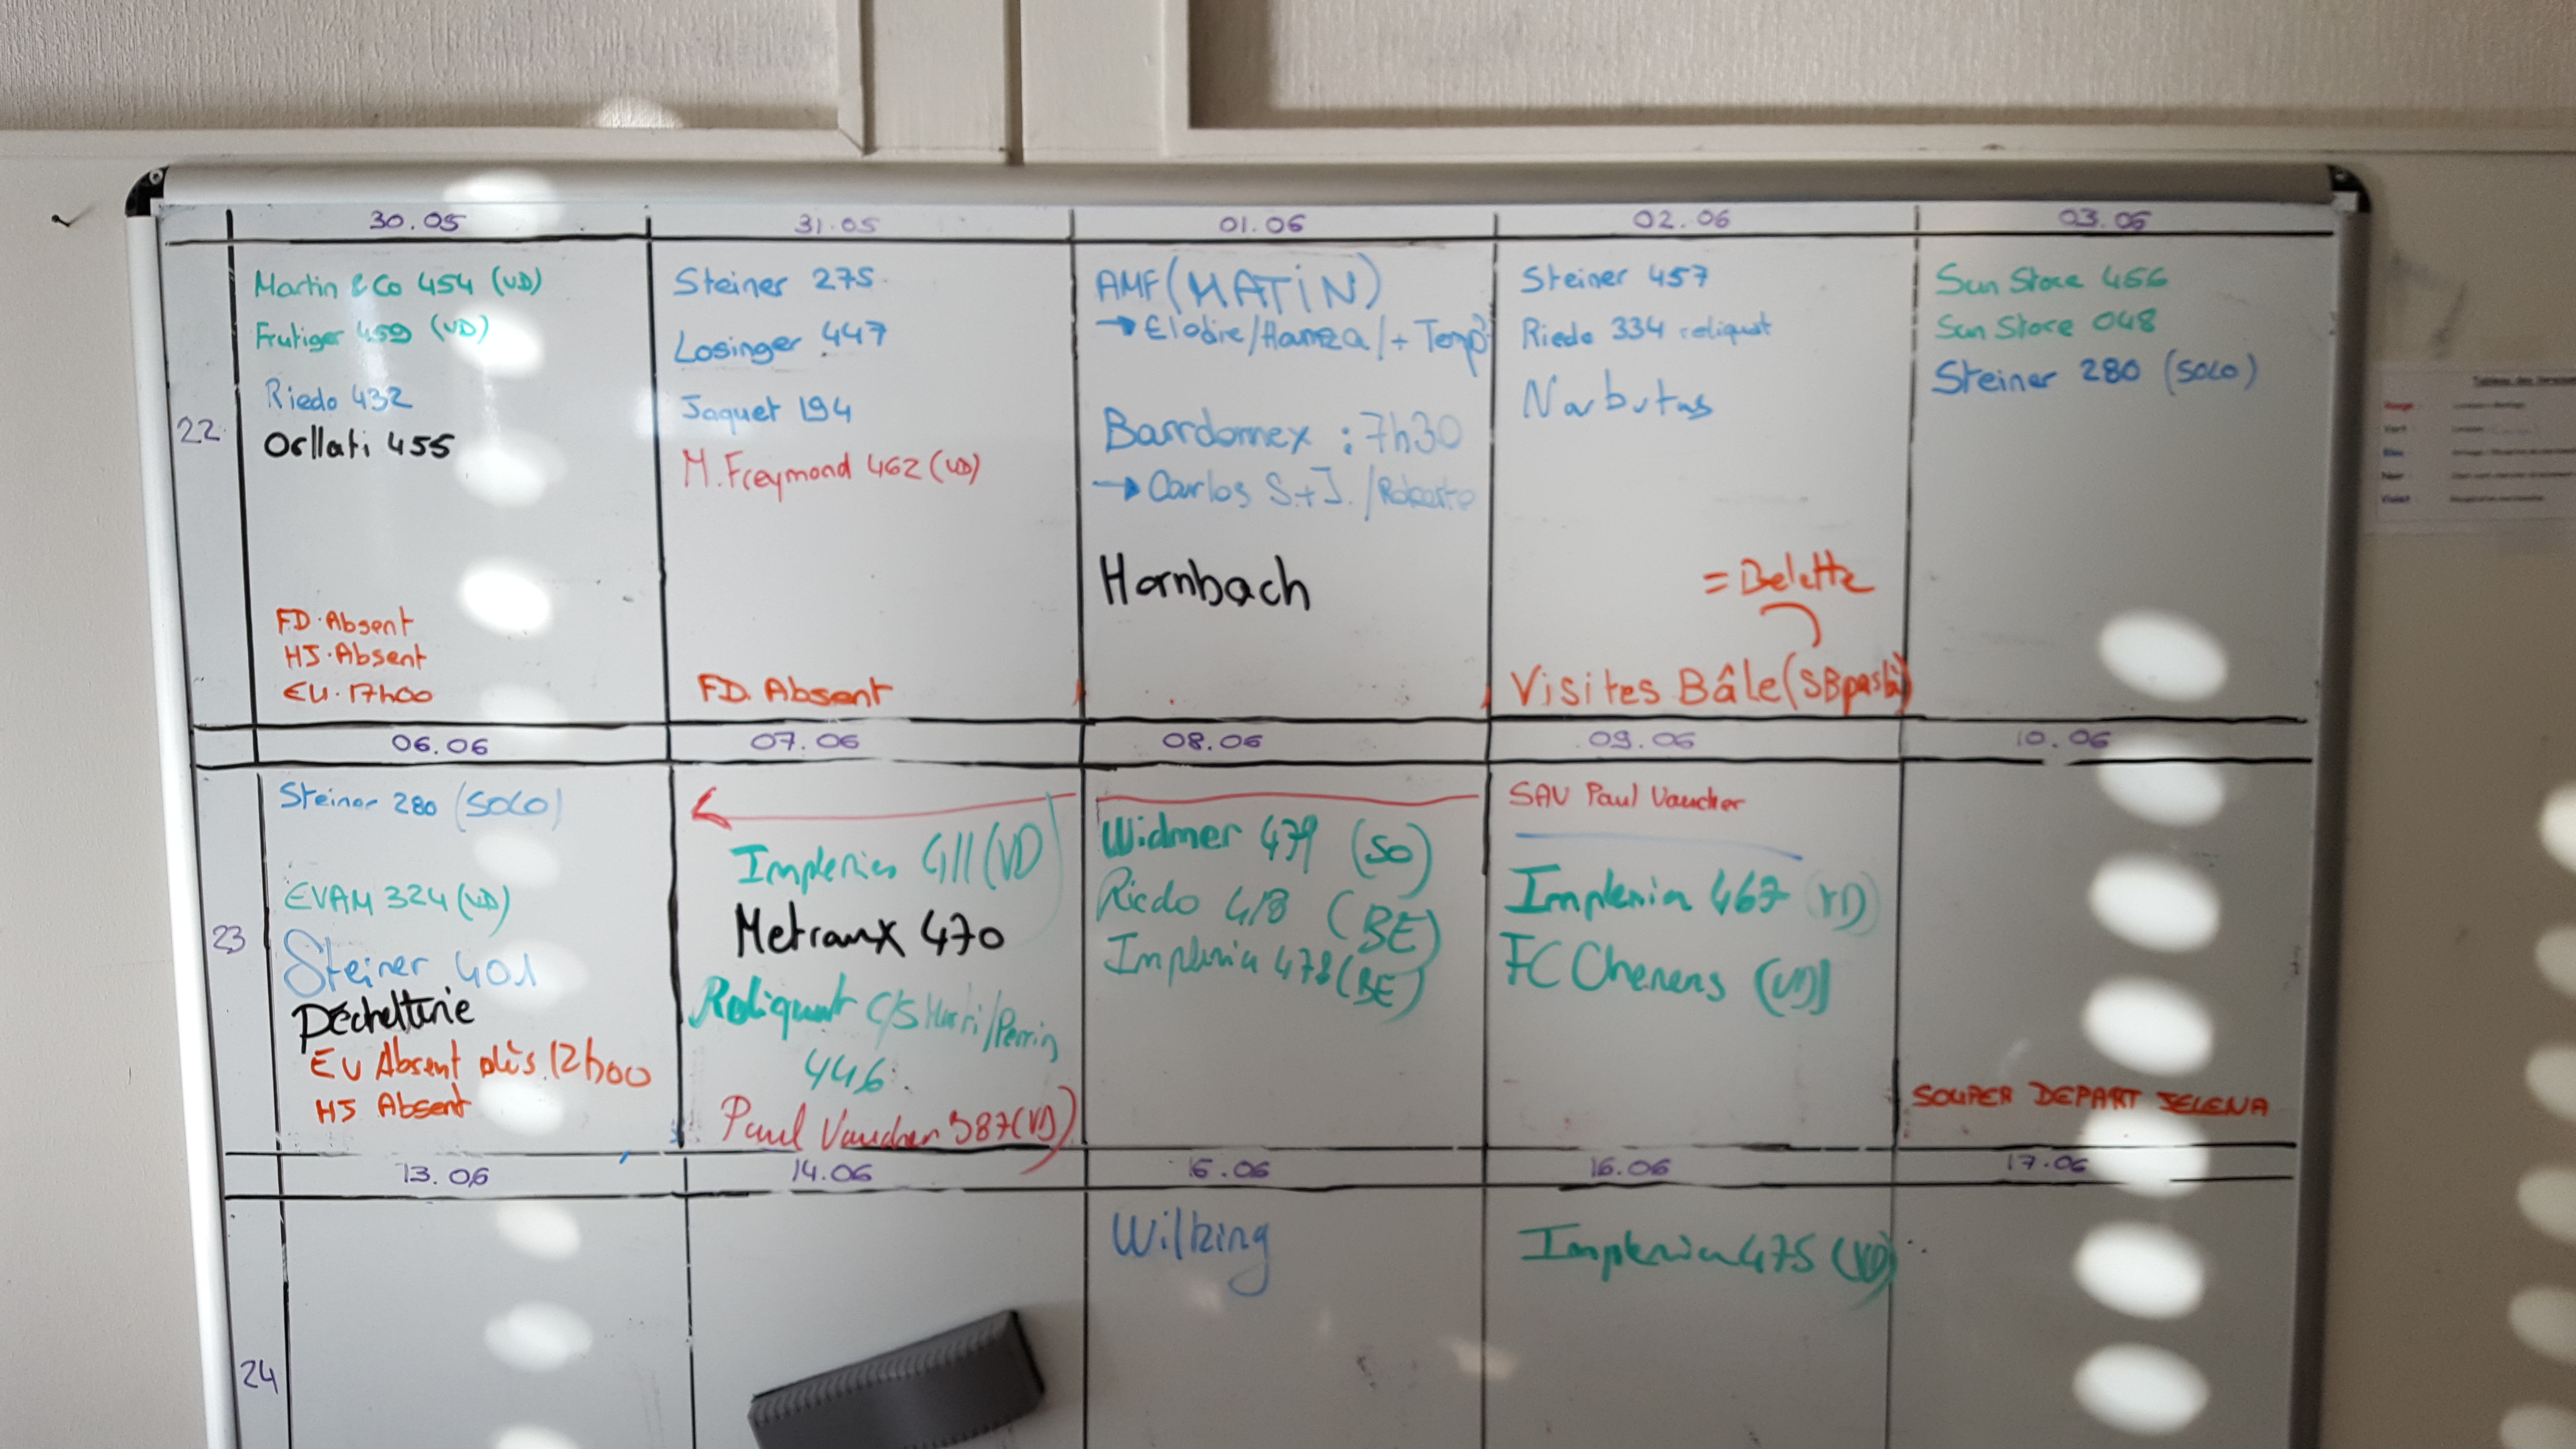 30.05
31.05
01.06
02.06
03.06
22
Martin & Co 454 (VD)
Frutiger 459 (VD)
Riedo 432
Orllati 455
FD. Absent
HJ. Absent
EU. 17h00
Steiner 275
Losinger 447
Jaquet 194
M. Freymond 462 (VD)
FD. Absent
AMF (MATIN)
→ Elodie/Hamza/+ Temp
Barrdomex : 7h30
→ Carlos S.+J. /Roberto
Hornbach
Steiner 457
Riedo 334 reliquat
Narbutas
= Belette
Visites Bâle (SB pas là)
Sun Store 456
Sun Store 048
Steiner 280 (SOLO)
06.06
07.06
08.06
09.06
10.06
23
Steiner 280 (SOLO)
EVAM 324 (VD)
Steiner 401
Déchetterie
EU Absent dès 12h00
HJ Absent
Implenia 411 (VD)
Metraux 470
Reliquat C/S Marti/Perrin
446
Paul Vaucher 387 (VD)
Widmer 479 (SO)
Riedo 418 (BE)
Implenia 478 (BE)
SAV Paul Vaucher
Implenia 467 (VD)
FC Chenens (VD)
SOUPER DEPART JELENA
13.06
14.06
15.06
16.06
17.06
24
Wilking
Implenia 475 (VD)